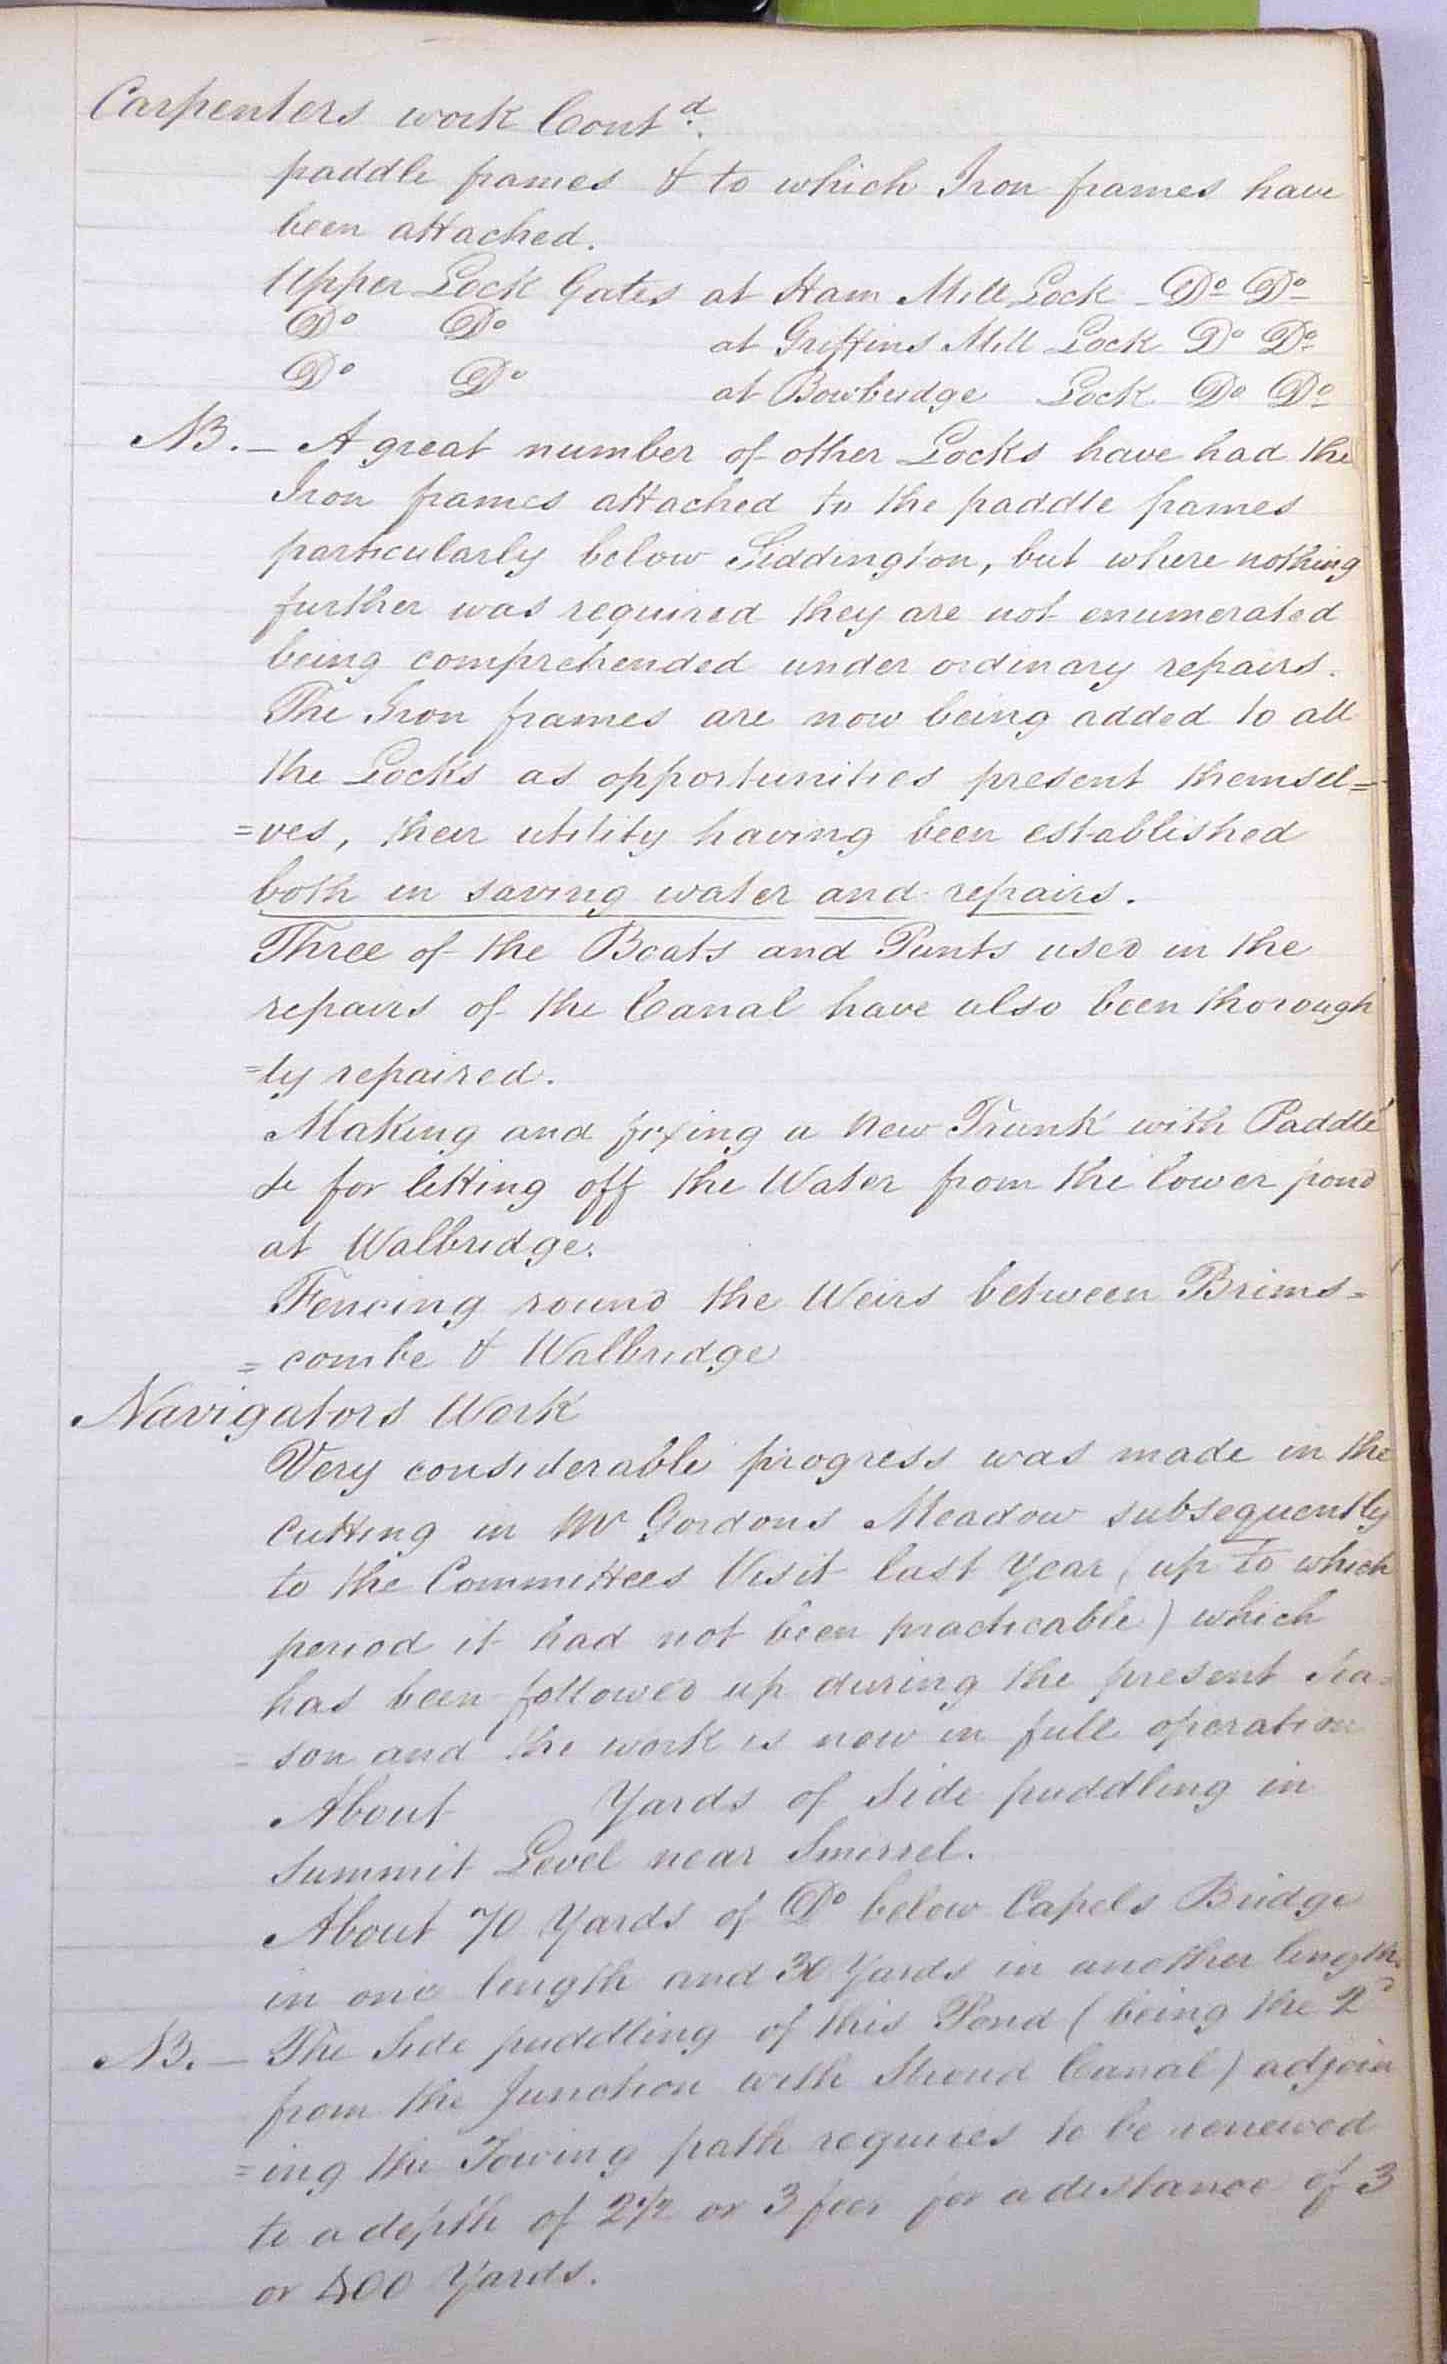 Carpenters work Contd.
paddle frames & to which Iron frames have
been attached.
Upper Lock Gates at Ham Mill Lock Do Do
Do Do at Griffins Mill Lock Do Do
Do Do at Bowbridge Lock Do Do
NB. — A great number of other Locks have had the
Iron frames attached to the paddle frames
particularly below Siddington, but where nothing
further was required they are not enumerated
being comprehended under ordinary repairs.
The Iron frames are now being added to all
the Locks as opportunities present themsel=
=ves, their utility having been established
both in saving water and repairs.
Three of the Boats and Punts used in the
repairs of the Canal have also been thorough
=ly repaired.
Making and fixing a new Trunk with Paddle
& for letting off the Water from the lower pond
at Walbridge.
Fencing round the Weirs between Brims=
=combe & Walbridge
Navigators Work
Very considerable progress was made in the
cutting in Mr Gordons Meadow subsequently
to the Committees Visit last Year (up to which
period it had not been practicable) which
has been followed up during the present Sea=
=son and the work is now in full operation
About Yards of Side puddling in
Summit Level near Smerrel.
About 70 Yards of Do below Capels Bridge
in one length and 30 Yards in another length.
NB. — The Side puddling of this Pond (being the 2d
from the Junction with Stroud Canal) adjoin
=ing the Towing path requires to be renewed
to a depth of 2½ or 3 feet for a distance of 3
or 400 Yards.